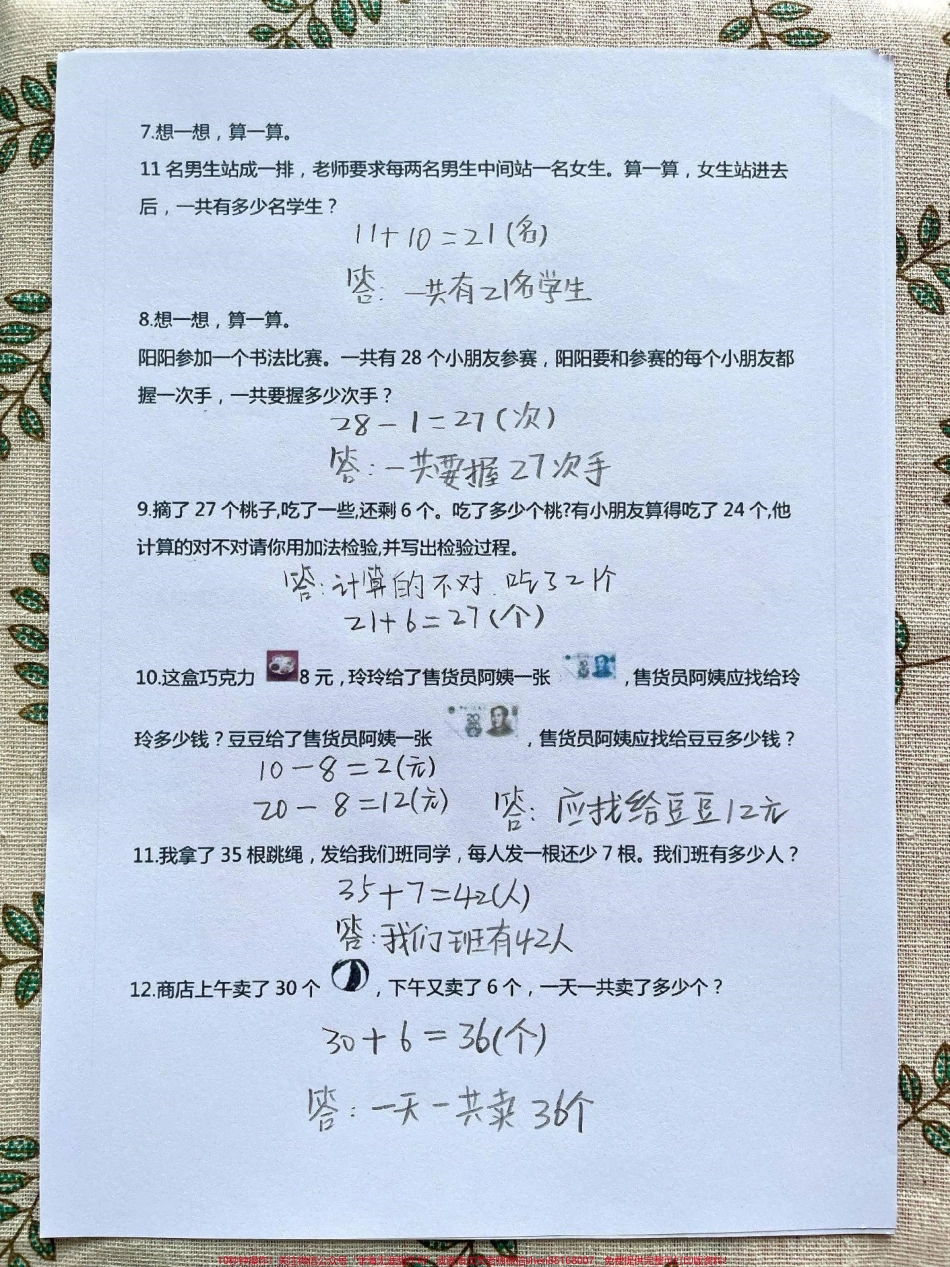 7.想一想，算一算。
11 名男生站成一排，老师要求每两名男生中间站一名女生。算一算，女生站进去
后，一共有多少名学生？
11+10=21(名)
答：一共有21名学生
8.想一想，算一算。
阳阳参加一个书法比赛。一共有 28 个小朋友参赛，阳阳要和参赛的每个小朋友都
握一次手，一共要握多少次手？
28-1=27(次)
答：一共要握27次手
9.摘了 27 个桃子,吃了一些,还剩 6 个。吃了多少个桃?有小朋友算得吃了 24 个,他
计算的对不对请你用加法检验,并写出检验过程。
答：计算的不对.吃了21个
21+6=27(个)
10.这盒巧克力 8 元，玲玲给了售货员阿姨一张 ，售货员阿姨应找给玲
玲多少钱？豆豆给了售货员阿姨一张 ，售货员阿姨应找给豆豆多少钱？
10-8=2(元)
20-8=12(元) 答：应找给豆豆12元
11.我拿了 35 根跳绳，发给我们班同学，每人发一根还少 7 根。我们班有多少人？
35+7=42(人)
答：我们班有42人
12.商店上午卖了 30 个 ，下午又卖了 6 个，一天一共卖了多少个？
30+6=36(个)
答：一天一共卖36个